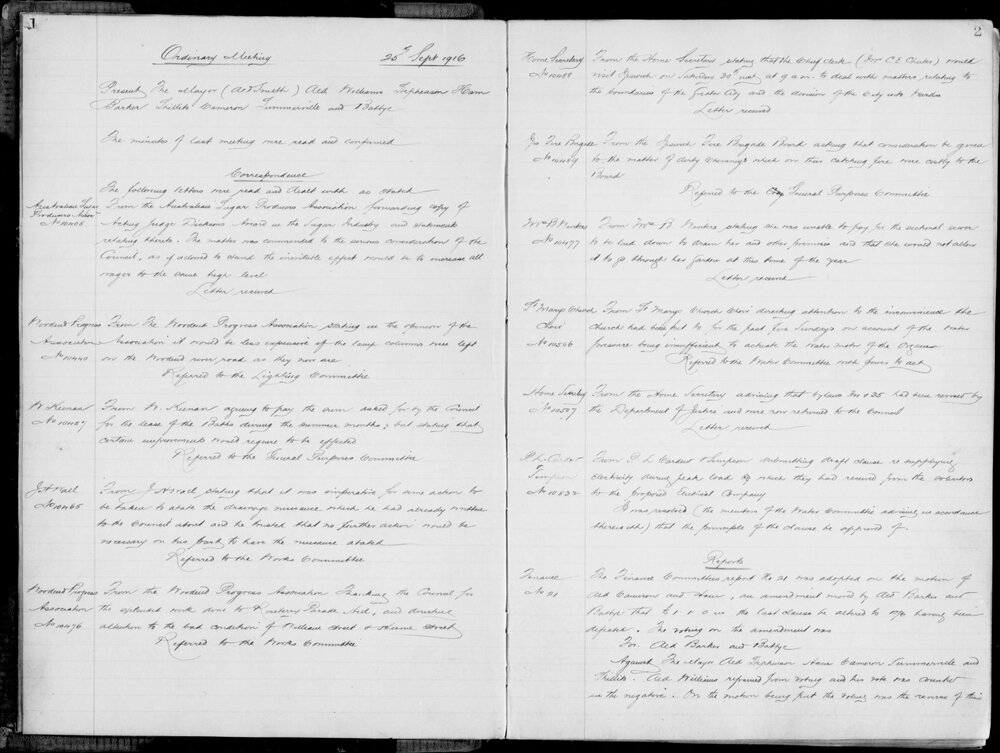 1
Ordinary Meeting 25th Sept 1916
Present The Mayor (Ald Smith) Ald Williams Stephenson Ham
Barker Summerville and Battye
The minutes of last meeting were read and confirmed
Correspondence
The following letters were read and dealt with as stated
Australian Sugar
Producers Assocn
No 10406
From the Australian Sugar Producers Association forwarding copy of
Acting Judge Dickson's Award in the Sugar Industry and statement
relating thereto. The matter was commended to the serious consideration of the
Council, as if allowed to stand the inevitable effect would be to increase all
wages to the same high level
Letter received
Woodend Progress
Association
No 10440
From The Woodend Progress Association stating in the opinion of the
Association it would be less expensive if the lamp columns were left
on the Woodend river road as they now are
Referred to the Lighting Committee
W Keenan
No 10457
From W. Keenan agreeing to pay the sum asked for by the Council
for the lease of the Baths during the summer months, but stating that
certain improvements would require to be effected
Referred to the General Purposes Committee
J H Wall
No 10465
From J H Wall stating that it was imperative for some action to
be taken to abate the drainage nuisance which he had already written
to the Council about and he trusted that no further action would be
necessary on his part to have the nuisance abated
Referred to the Works Committee
Woodend Progress
Association
No 10476
From the Woodend Progress Association Thanking the Council for
the splendid work done to Parade and drawing
attention to the bad condition of William Street & Street
Referred to the Works Committee
2
Home Secretary
No 10458
From the Home Secretary stating that the Chief Clerk (Mr C E Chuter) would
visit Ipswich on Saturday 30th inst at 9 a.m. to deal with matters relating to
the boundaries of the Greater City and the division of the City into Wards
Letter received
Fire Brigade
No 10489
From the Ipswich Fire Brigade Board asking that consideration be given
to the matter of dirty chimneys which on their catching fire were costly to the
Board
Referred to the General Purposes Committee
Mrs B Winters
No 10477
From Mrs B. Winters stating she was unable to pay for the sectional sewer
to be laid down to drain her and other premises and that she would not allow
it to go through her garden at this time of the year
Letter received
St Marys Church
Choir
No 10506
From St Marys Church Choir directing attention to the inconvenience the
Church had been put to for the past few Sundays on account of the water
pressure being insufficient to actuate the water motor of the Organ
Referred to the Water Committee with power to act
Home Secretary
No 10507
From the Home Secretary advising that bylaws had been revised by
the Department of Justice and were now returned to the Council
Letter received
P L Cardew
& Simpson
No 10522
From P L Cardew & Simpson submitting draft clause re supplying
electricity during peak load which they had received from the solicitors
to the Proposed Electrical Company
It was resolved (the members of the Water Committee advising in accordance
therewith) that the principle of the clause be approved of.
Reports
Finance
No 21
The Finance Committees report No 21 was adopted on the motion of
Ald Cameron and Ham, an amendment moved by Ald Barker and
Battye that £1 1 0 in the last clause be altered to having been
defeated. The voting on the amendment was
For Ald Barker and Battye
Against The Mayor Ald Stephenson Ham Cameron Summerville and
Ald Williams refrained from voting and his vote was counted
in the negative. On the motion being put the voting was the reverse of this